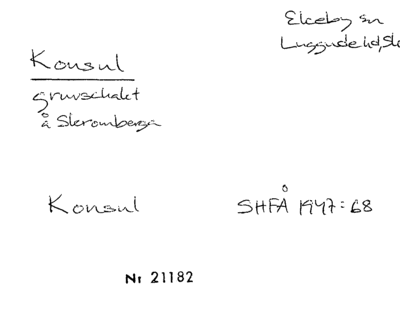 Ekeby sn
Luggude hd, Sk
Konsul
gruvschakt
å Skromberga
Konsul
SHFÅ 1947:68
Nr 21182